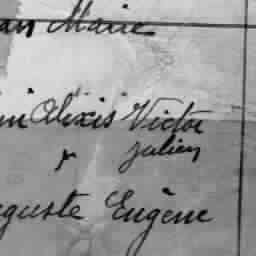 an Marie
in Alexis Victor
& Julien
guste Eugène